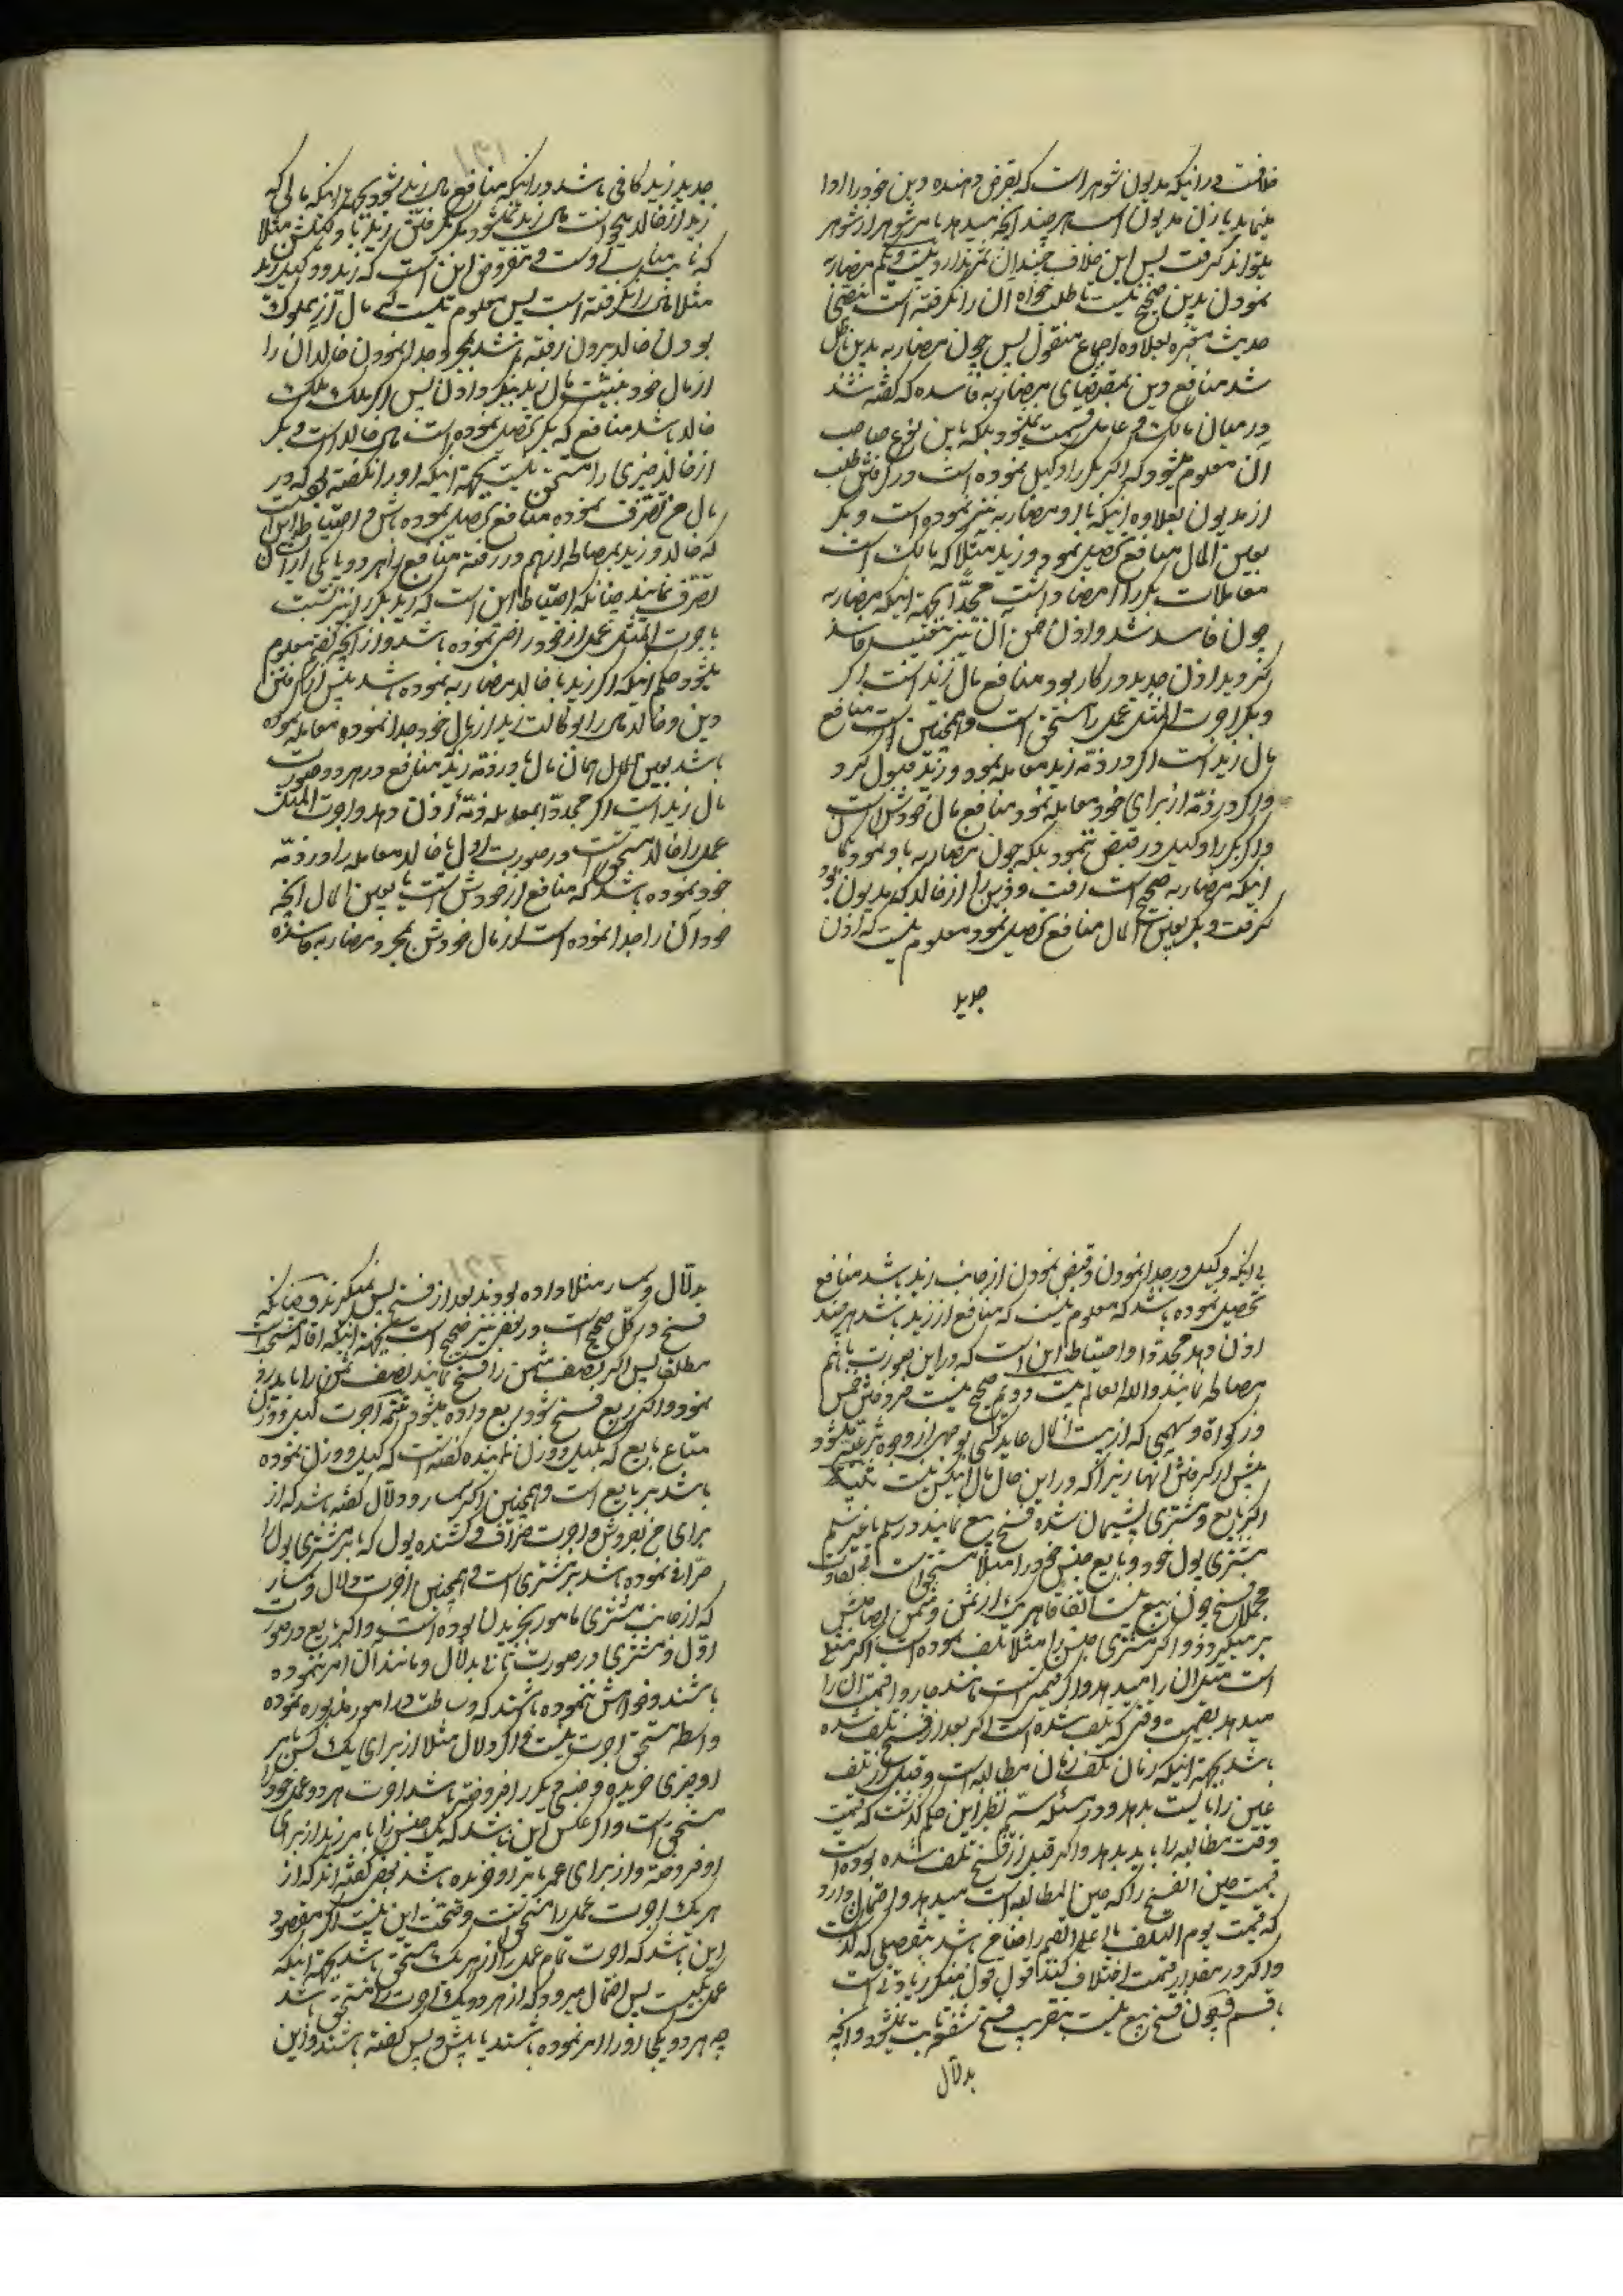 خلافست در اینکه مدیون شوهر است که بقرض دهنده دین خود را ادا
مینماید یا زن مدیون است هر چند آنچه میدهد بامر شوهر از شوهر
میتواند گرفت پس این خلاف چندان ثمر ندارد بیست و یکم مضاربه
نمودن بدین صحیح نیست تا طلب خواه آن را نگرفته است بنص
حدیث معتبره بعلاوه اجماع منقول پس چون مضاربه بدین باطل
شد منافع دین بمقتضای مضاربه فاسده که گفته شد
در میان مالک و عامل قسمت نمیشود بلکه باین نوع صاحب
آن معلوم میشود که اگر بکر را وکیل نموده است در گرفتن طلب
از مدیون بعلاوه اینکه با او مضاربه نیز نموده است و بکر
بعین المال منافع تحصیل نمود و زید مثلا که مالک است
معاملات بکر را امضا داشت مجددا بجهة اینکه مضاربه
چون فاسد شد و اذن ضمن آن نیز فاسد
گردید اذن جدید در کار بود منافع مال زید است
و بکر اجرت المثل عمل را مستحق است و همچنین است منافع
مال زید است اگر در ذمه زید معامله نمود و زید قبول کرد
و اگر در ذمه از برای خود معامله نمود منافع مال خودش است
و اگر بکر را وکیل در قبض ننمود بلکه چون مضاربه باو نمود
اینکه مضاربه صحیح است رفت و دین را از خالد که مدیون بود
گرفت و بکر بعین المال منافع تحصیل نمود معلوم نیست که اذن
جدید
جدید زید کافی باشد در اینکه منافع مال زید شود بجهة اینکه مالی که
زید از خالد میخواست مال زید نمیشود مگر بگرفتن زید یا وکیلش مثلا
که نایب مناب اوست و مفروض این است که زید و وکیل زید
مثلا مال را نگرفته است پس معلوم نیست که مال از مملوک
بودن خالد بیرون رفته باشد بمجرد جدا نمودن خالد آن را
از مال خود بنیت مال زید ببکر دادن پس اگر ملک
خالد باشد منافع که بکر تحصیل نموده است مال خالد است و بکر
از خالد چیزی را مستحق نیست بجهة اینکه او را نگفته بود که در
مال من تصرف نموده منافع تحصیل نموده باش و احتیاط این است
که خالد و زید بمصالحه از هم در رفته منافع را هر دو یا یکی از آن
تصرف نمایند چنانکه احتیاط این است که زید بکر را نیز نسبت
باجرت المثل عمل از خود راضی نموده باشد و از آنچه گفتم معلوم
میشود حکم اینکه اگر زید با خالد مضاربه نموده باشد پیش از گرفتن
دین و خالد مال را بوکالت زید از مال خود جدا نموده معامله نموده
باشد بعین المال همان مال یا در ذمه زید منافع در هر دو صورت
مال زید است اگر مجددا بمعامله ذمه اذن دهد و اجرت المثل
عمل را خالد مستحق است و در صورت اول با خالد معامله را در ذمه
خود نموده باشد که منافع از خودش است یا بعین المال آنچه
خود آن را جدا نموده است از مال خودش بمجرد مضاربه فاسده
بی آنکه وکیل در جدا نمودن و قبض نمودن از جانب زید باشد منافع
تحصیل نموده باشد که معلوم نیست که منافع از زید باشد هر چند
اذن دهد مجددا و احتیاط این است که در این صورت با هم
مصالحه نمایند والله العالم بیست دویم صحیح نیست فروختن خمس
و زکواة و سهمی که از بیت المال عاید کسی بوجهی از وجوه شرعیه میشود
پیش از گرفتن آنها زیرا که در این حال مال این کس نیست
اگر بایع و مشتری پشیمان شده فسخ بیع نمایند در سلم یا غیر سلم
مشتری پول خود و بایع جنس خود را مثلا مستحق است بی تفاوت
مجملا فسخ چون بیع نیست اتفاقا هر یک از ثمن و مثمن بصاحبش
بر میگردد و اگر مشتری جنس را مثلا تلف نموده است اگر مثلی
است مثل آن را میدهد و اگر قیمتی است مانند چاروا قیمت آن را
میدهد بقیمت وقتی که تلف شده است اگر بعد از فسخ تلف شده
باشد بجهة اینکه زمان تلف زمان مطالبه است و قبل از تلف
عین را بایست بدهد و در مسئله سیم نظیر این حکم گذشت که قیمت
وقت مطالبه را باید بدهد و اگر قبل از فسخ تلف شده بوده است
قیمت حین الفسخ را که حین المطالبه است میدهد و احتمال دارد
که قیمت یوم التلف یا اعلی القیم را ضامن باشد بتفصیلی که گذشت
و اگر در مقدار قیمت اختلاف کنند قول قول منکر زیادتی است
با قسم و چون فسخ بیع نیست بتقریب فسخ شفعه ثابت نمیشود و آنچه
بدلال
بدلال و سمسار مثلا داده بودند بعد از فسخ پس نمیگیرند و چنانکه
فسخ در کل صحیح است در بعض نیز صحیح است بجهة اینکه اقاله مستحب است
مطلقا پس اگر نصف مثمن را فسخ نمایند نصف ثمن را باید رد
نمود و اگر ربع فسخ شود ربع داده میشود تتمه اجرت کیل و وزن
متاع بایع که بکیل و وزن نماینده گفته است که کیل و وزن نموده
باشد بر بایع است و همچنین اگر سمسار و دلال گفته باشد که از
برای من بفروش و اجرت صراف و کشنده پول که بامر مشتری پول را
صرافی نموده باشد بر مشتری است و همچنین اجرت دلال و سمسار
که از جانب مشتری مامور بخریدن بوده است و اگر بایع در صورت
اول و مشتری در صورت ثانی بدلال و مانند آن امر ننموده
باشند و خواهش ننموده باشند که وساطت در امور مذبوره نموده
واسطه مستحق اجرت نیست و اگر دلال مثلا از برای یک کس بامر
او چیزی خریده و جنس دیگر را فروخته باشد اجرت هر دو عمل خود را
مستحق است و اگر عکس این باشد که یک جنس را بامر زید از برای
او فروخته و از برای عمرو بامر او خریده باشد بعضی گفته اند که از
هر یک اجرت عمل را مستحق نیست و تحقیق این نیست اگر مقصود
این باشد که اجرت تمام عمل را از هر یک مستحق باشد بجهة اینکه
عمل یکیست پس احتمال میرود که از هر دو یک اجرت را مستحق باشد
چه هر دو یکجا او را امر نموده باشند یا پیش و پس گفته باشند و این